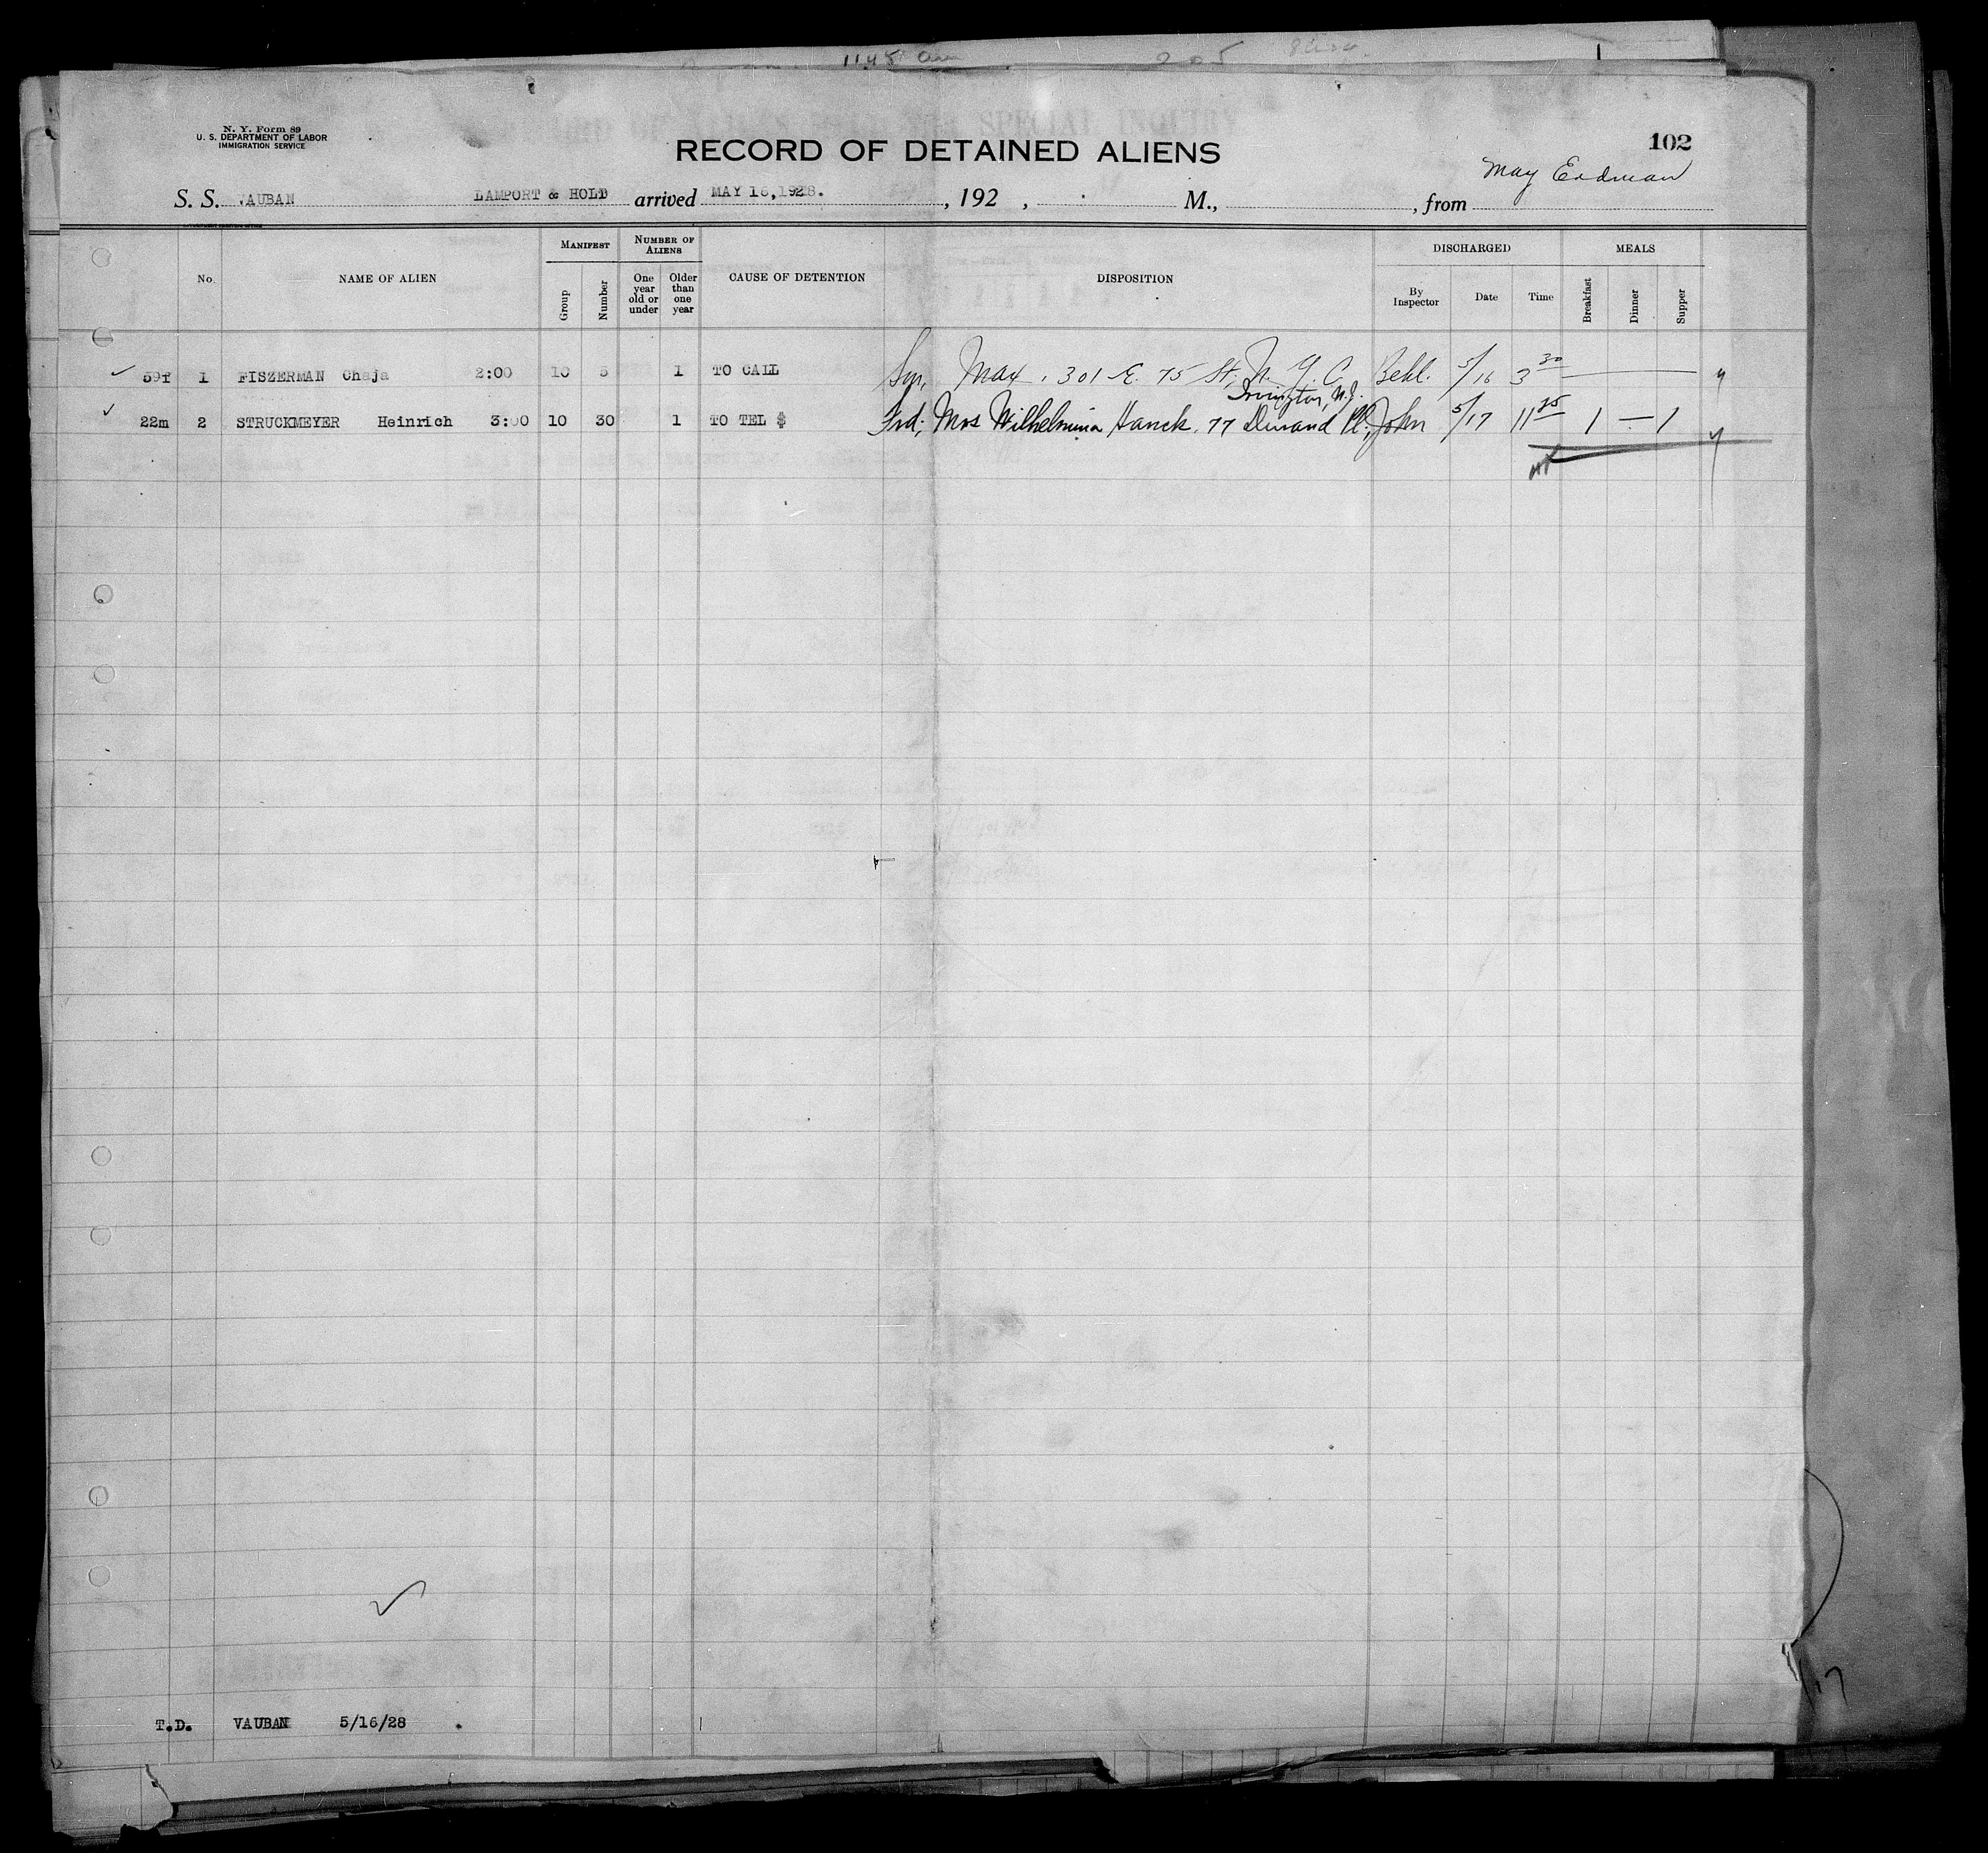 1145 am 205
N. Y. Form 89
U. S. DEPARTMENT OF LABOR
IMMIGRATION SERVICE
SPECIAL INQUIRY
RECORD OF DETAINED ALIENS
102
May Erdman
S. S. VAUBAN LAMPORT & HOLD arrived MAY 16, 1928. , 192 , M., , from
No. NAME OF ALIEN MANIFEST Group Number NUMBER OF ALIENS One year old or under Older than one year CAUSE OF DETENTION DISPOSITION DISCHARGED By Inspector Date Time MEALS Breakfast Dinner Supper
59f 1 FISZERMAN Chaja 2:00 10 5 1 TO CALL Son, Max, 301 E. 75 St, N. Y. C. 5/16 3 30
Irvington, N.J.
22m 2 STRUCKMEYER Heinrich 3:00 10 30 1 TO TEL $ Frd; Mrs Wilhelmina Hanck, 77 Durand Pl; John 5/17 11 25 1 — 1
T.D. VAUBAN 5/16/28